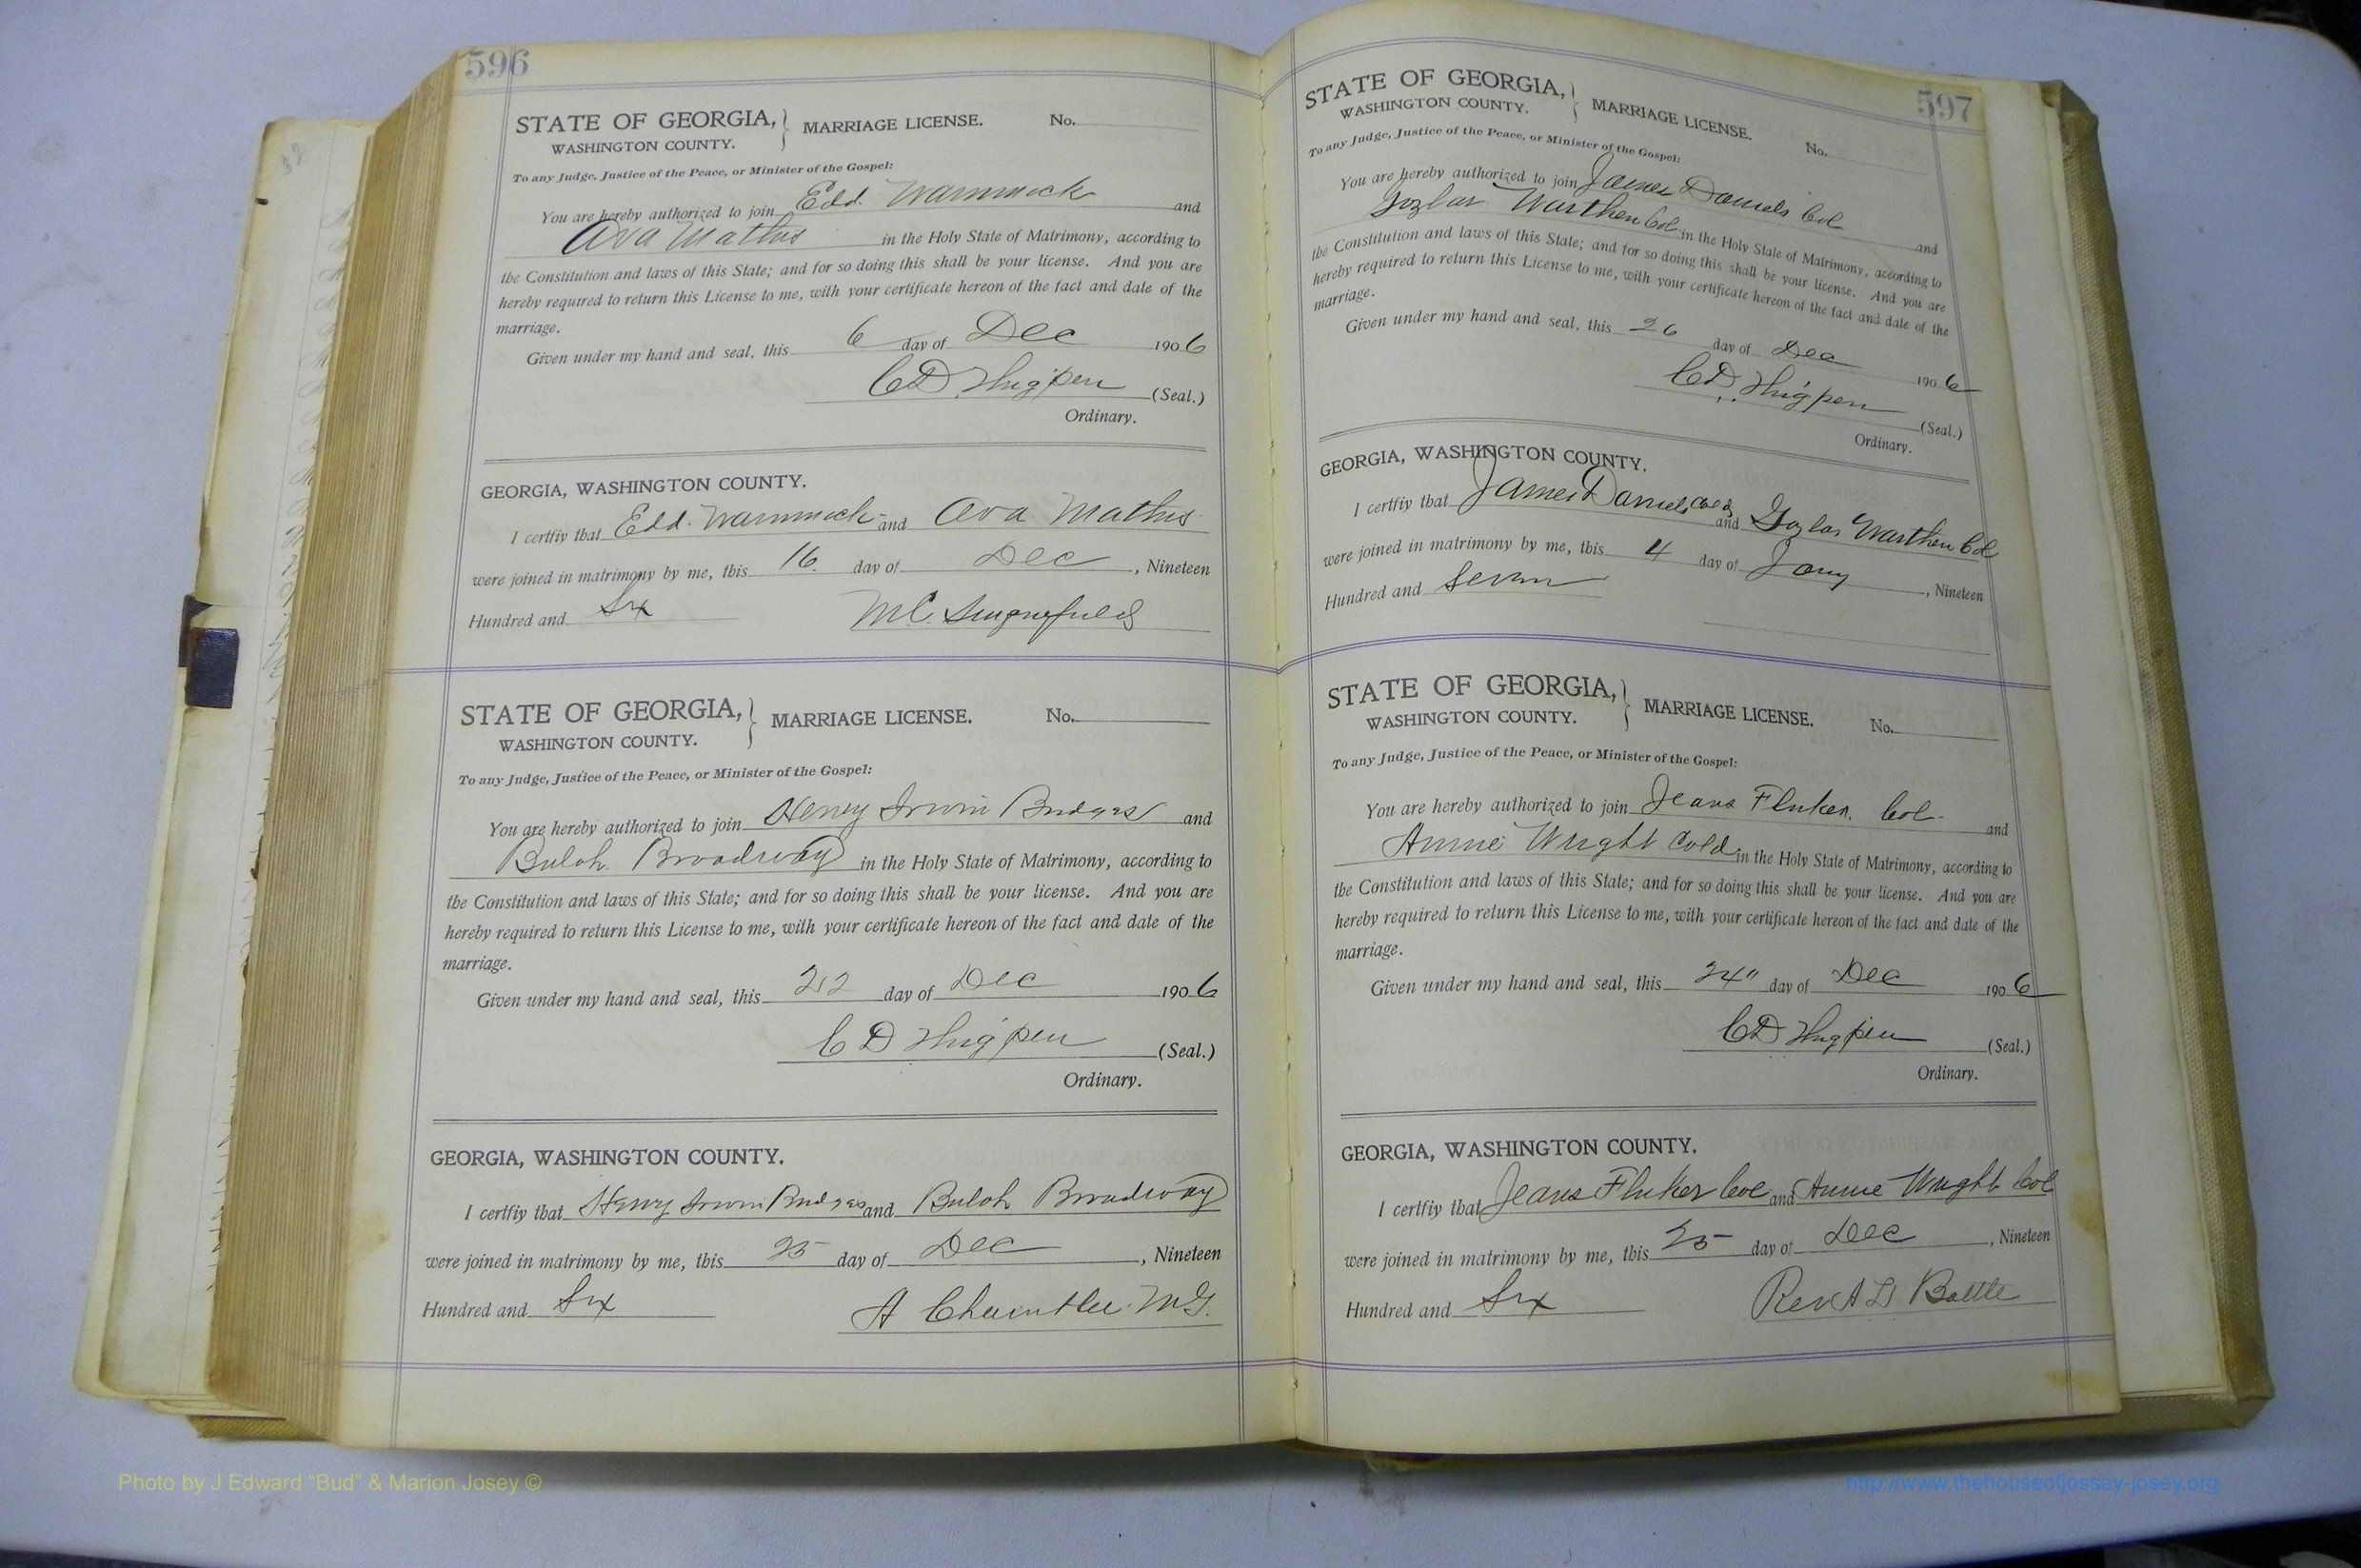 596
STATE OF GEORGIA, } MARRIAGE LICENSE. No.
WASHINGTON COUNTY.
To any Judge, Justice of the Peace, or Minister of the Gospel:
You are hereby authorized to join Edd. Wammock and
Ava Mathis in the Holy State of Matrimony, according to
the Constitution and laws of this State; and for so doing this shall be your license. And you are
hereby required to return this License to me, with your certificate hereon of the fact and date of the
marriage.
Given under my hand and seal, this 6 day of Dec 1906
CD Thigpen (Seal.)
Ordinary.
GEORGIA, WASHINGTON COUNTY.
I certfiy that Edd. Wammock and Ava Mathis
were joined in matrimony by me, this 16. day of Dec, Nineteen
Hundred and Six M.C.
STATE OF GEORGIA, } MARRIAGE LICENSE. No.
WASHINGTON COUNTY.
To any Judge, Justice of the Peace, or Minister of the Gospel:
You are hereby authorized to join Henry Irwin Bridges and
Bulah Broadway in the Holy State of Matrimony, according to
the Constitution and laws of this State; and for so doing this shall be your license. And you are
hereby required to return this License to me, with your certificate hereon of the fact and date of the
marriage.
Given under my hand and seal, this 22 day of Dec 1906
CD Thigpen (Seal.)
Ordinary.
GEORGIA, WASHINGTON COUNTY.
I certfiy that Henry Irwin Bridges and Bulah Broadway
were joined in matrimony by me, this 25 day of Dec, Nineteen
Hundred and Six A M.G.
597
STATE OF GEORGIA, } MARRIAGE LICENSE. No.
WASHINGTON COUNTY.
To any Judge, Justice of the Peace, or Minister of the Gospel:
You are hereby authorized to join James Daniels Col and
Warthen Col in the Holy State of Matrimony, according to
the Constitution and laws of this State; and for so doing this shall be your license. And you are
hereby required to return this License to me, with your certificate hereon of the fact and date of the
marriage.
Given under my hand and seal, this 26 day of Dec 1906
CD. Thigpen (Seal.)
Ordinary.
GEORGIA, WASHINGTON COUNTY.
I certfiy that James Daniels Cold and Warthen Col
were joined in matrimony by me, this 4 day of Jany, Nineteen
Hundred and Seven
STATE OF GEORGIA, } MARRIAGE LICENSE. No.
WASHINGTON COUNTY.
To any Judge, Justice of the Peace, or Minister of the Gospel:
You are hereby authorized to join Jeans Fluker. Col. and
Annie Wright Cold in the Holy State of Matrimony, according to
the Constitution and laws of this State; and for so doing this shall be your license. And you are
hereby required to return this License to me, with your certificate hereon of the fact and date of the
marriage.
Given under my hand and seal, this 24" day of Dec 1906
CD Thigpen (Seal.)
Ordinary.
GEORGIA, WASHINGTON COUNTY.
I certfiy that Jeans Fluker Col and Annie Wright Col
were joined in matrimony by me, this 25 day of Dec, Nineteen
Hundred and Six Rev A D Battle
Photo by J Edward "Bud" & Marion Josey ©
http://www.thehouseofjossey-josey.org